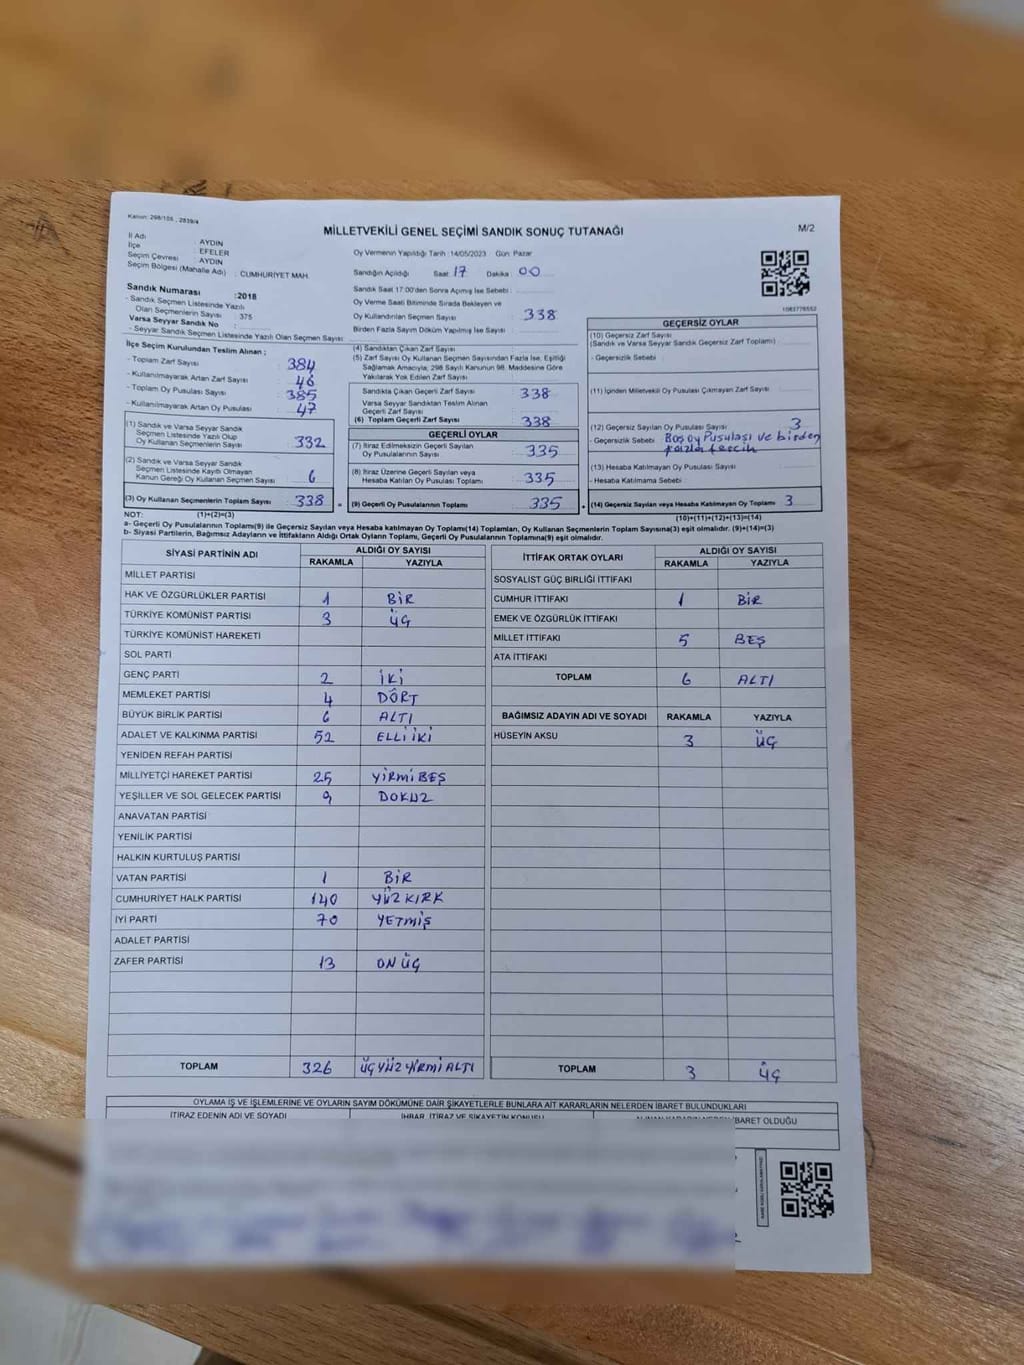 Kanun: 298/105 , 2839/4
MİLLETVEKİLİ GENEL SEÇİMİ SANDIK SONUÇ TUTANAĞI
M/2
İl Adı : AYDIN
İlçe : EFELER
Seçim Çevresi : AYDIN
Seçim Bölgesi (Mahalle Adı) : CUMHURİYET MAH.
Sandık Numarası :2018
- Sandık Seçmen Listesinde Yazılı
Olan Seçmenlerin Sayısı : 375
Varsa Seyyar Sandık No :
- Seyyar Sandık Seçmen Listesinde Yazılı Olan Seçmen Sayısı:
Oy Vermenin Yapıldığı Tarih :14/05/2023 Gün: Pazar
Sandığın Açıldığı Saat: 17 Dakika : 00
Sandık Saat 17:00'den Sonra Açılmış İse Sebebi :
Oy Verme Saati Bitiminde Sırada Bekleyen ve
Oy Kullandırılan Seçmen Sayısı : 338
Birden Fazla Sayım Döküm Yapılmış İse Sayısı :
1083776552
İlçe Seçim Kurulundan Teslim Alınan ;
- Toplam Zarf Sayısı : 384
- Kullanılmayarak Artan Zarf Sayısı : 46
- Toplam Oy Pusulası Sayısı : 385
- Kullanılmayarak Artan Oy Pusulası : 47
(1) Sandık ve Varsa Seyyar Sandık
Seçmen Listesinde Yazılı Olup
Oy Kullanan Seçmenlerin Sayısı : 332
(2) Sandık ve Varsa Seyyar Sandık
Seçmen Listesinde Kayıtlı Olmayan
Kanun Gereği Oy Kullanan Seçmen Sayısı : 6
(3) Oy Kullanan Seçmenlerin Toplam Sayısı : 338
(1)+(2)=(3)
(4) Sandıktan Çıkan Zarf Sayısı :
(5) Zarf Sayısı Oy Kullanan Seçmen Sayısından Fazla İse, Eşitliği
Sağlamak Amacıyla; 298 Sayılı Kanunun 98. Maddesine Göre
Yakılarak Yok Edilen Zarf Sayısı :
Sandıkta Çıkan Geçerli Zarf Sayısı : 338
Varsa Seyyar Sandıktan Teslim Alınan
Geçerli Zarf Sayısı :
(6) Toplam Geçerli Zarf Sayısı : 338
GEÇERLİ OYLAR
(7) İtiraz Edilmeksizin Geçerli Sayılan
Oy Pusulalarının Sayısı : 335
(8) İtiraz Üzerine Geçerli Sayılan veya
Hesaba Katılan Oy Pusulası Toplamı : 335
= (9) Geçerli Oy Pusulalarının Toplamı : 335
GEÇERSİZ OYLAR
(10) Geçersiz Zarf Sayısı :
(Sandık ve Varsa Seyyar Sandık Geçersiz Zarf Toplamı)
- Geçersizlik Sebebi :
(11) İçinden Milletvekili Oy Pusulası Çıkmayan Zarf Sayısı :
(12) Geçersiz Sayılan Oy Pusulası Sayısı : 3
- Geçersizlik Sebebi : Boş oy Pusulası ve birden
fazla tercih
(13) Hesaba Katılmayan Oy Pusulası Sayısı :
- Hesaba Katılmama Sebebi :
+ (14) Geçersiz Sayılan veya Hesaba Katılmayan Oy Toplamı : 3
(10)+(11)+(12)+(13)=(14)
NOT:
a- Geçerli Oy Pusulalarının Toplamı(9) ile Geçersiz Sayılan veya Hesaba katılmayan Oy Toplamı(14) Toplamları, Oy Kullanan Seçmenlerin Toplam Sayısına(3) eşit olmalıdır. (9)+(14)=(3)
b- Siyasi Partilerin, Bağımsız Adayların ve İttifakların Aldığı Ortak Oyların Toplamı, Geçerli Oy Pusulalarının Toplamına(9) eşit olmalıdır.
SİYASİ PARTİNİN ADI ALDIĞI OY SAYISI
RAKAMLA YAZIYLA
MİLLET PARTİSİ
HAK VE ÖZGÜRLÜKLER PARTİSİ 1 BİR
TÜRKİYE KOMÜNİST PARTİSİ 3 ÜÇ
TÜRKİYE KOMÜNİST HAREKETİ
SOL PARTİ
GENÇ PARTİ 2 İKİ
MEMLEKET PARTİSİ 4 DÖRT
BÜYÜK BİRLİK PARTİSİ 6 ALTI
ADALET VE KALKINMA PARTİSİ 52 ELLİ İKİ
YENİDEN REFAH PARTİSİ
MİLLİYETÇİ HAREKET PARTİSİ 25 YİRMİ BEŞ
YEŞİLLER VE SOL GELECEK PARTİSİ 9 DOKUZ
ANAVATAN PARTİSİ
YENİLİK PARTİSİ
HALKIN KURTULUŞ PARTİSİ
VATAN PARTİSİ 1 BİR
CUMHURİYET HALK PARTİSİ 140 YÜZ KIRK
İYİ PARTİ 70 YETMİŞ
ADALET PARTİSİ
ZAFER PARTİSİ 13 ON ÜÇ
TOPLAM 326 ÜÇ YÜZ YİRMİ ALTI
İTTİFAK ORTAK OYLARI ALDIĞI OY SAYISI
RAKAMLA YAZIYLA
SOSYALİST GÜÇ BİRLİĞİ İTTİFAKI
CUMHUR İTTİFAKI 1 BİR
EMEK VE ÖZGÜRLÜK İTTİFAKI
MİLLET İTTİFAKI 5 BEŞ
ATA İTTİFAKI
TOPLAM 6 ALTI
BAĞIMSIZ ADAYIN ADI VE SOYADI RAKAMLA YAZIYLA
HÜSEYİN AKSU 3 ÜÇ
TOPLAM 3 ÜÇ
OYLAMA İŞ VE İŞLEMLERİNE VE OYLARIN SAYIM DÖKÜMÜNE DAİR ŞİKAYETLERLE BUNLARA AİT KARARLARIN NELERDEN İBARET BULUNDUKLARI
İTİRAZ EDENİN ADI VE SOYADI İHBAR, İTİRAZ VE ŞİKAYETİN KONUSU İBARET OLDUĞU